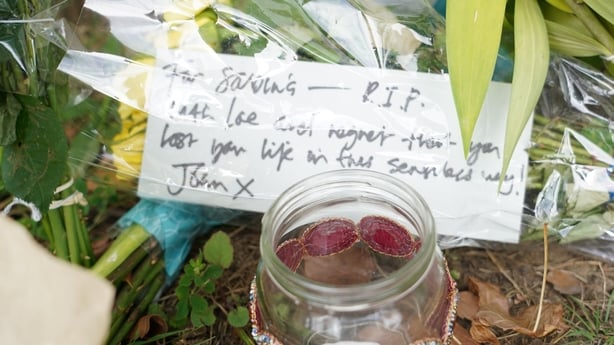 For Sabina — R.I.P.
With love and regret that you
lost your life in this senseless way!
Joan x